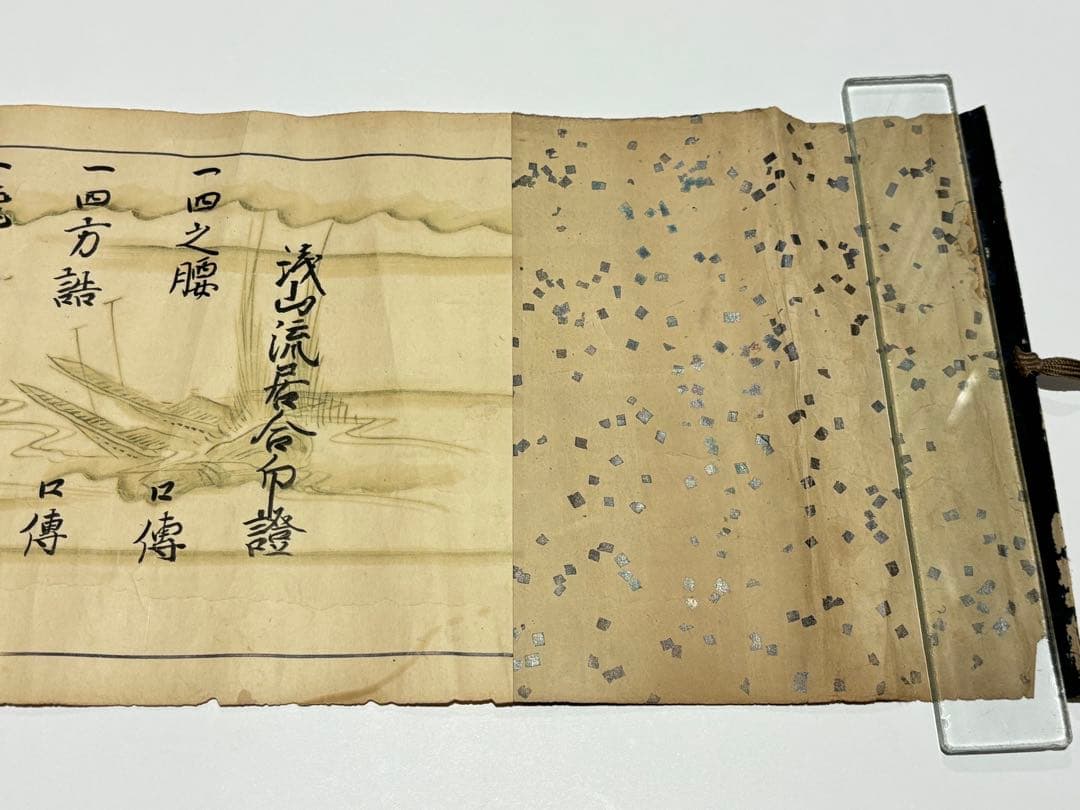 浅山流居合印證
一四之腰 口傳
一四方詰 口傳